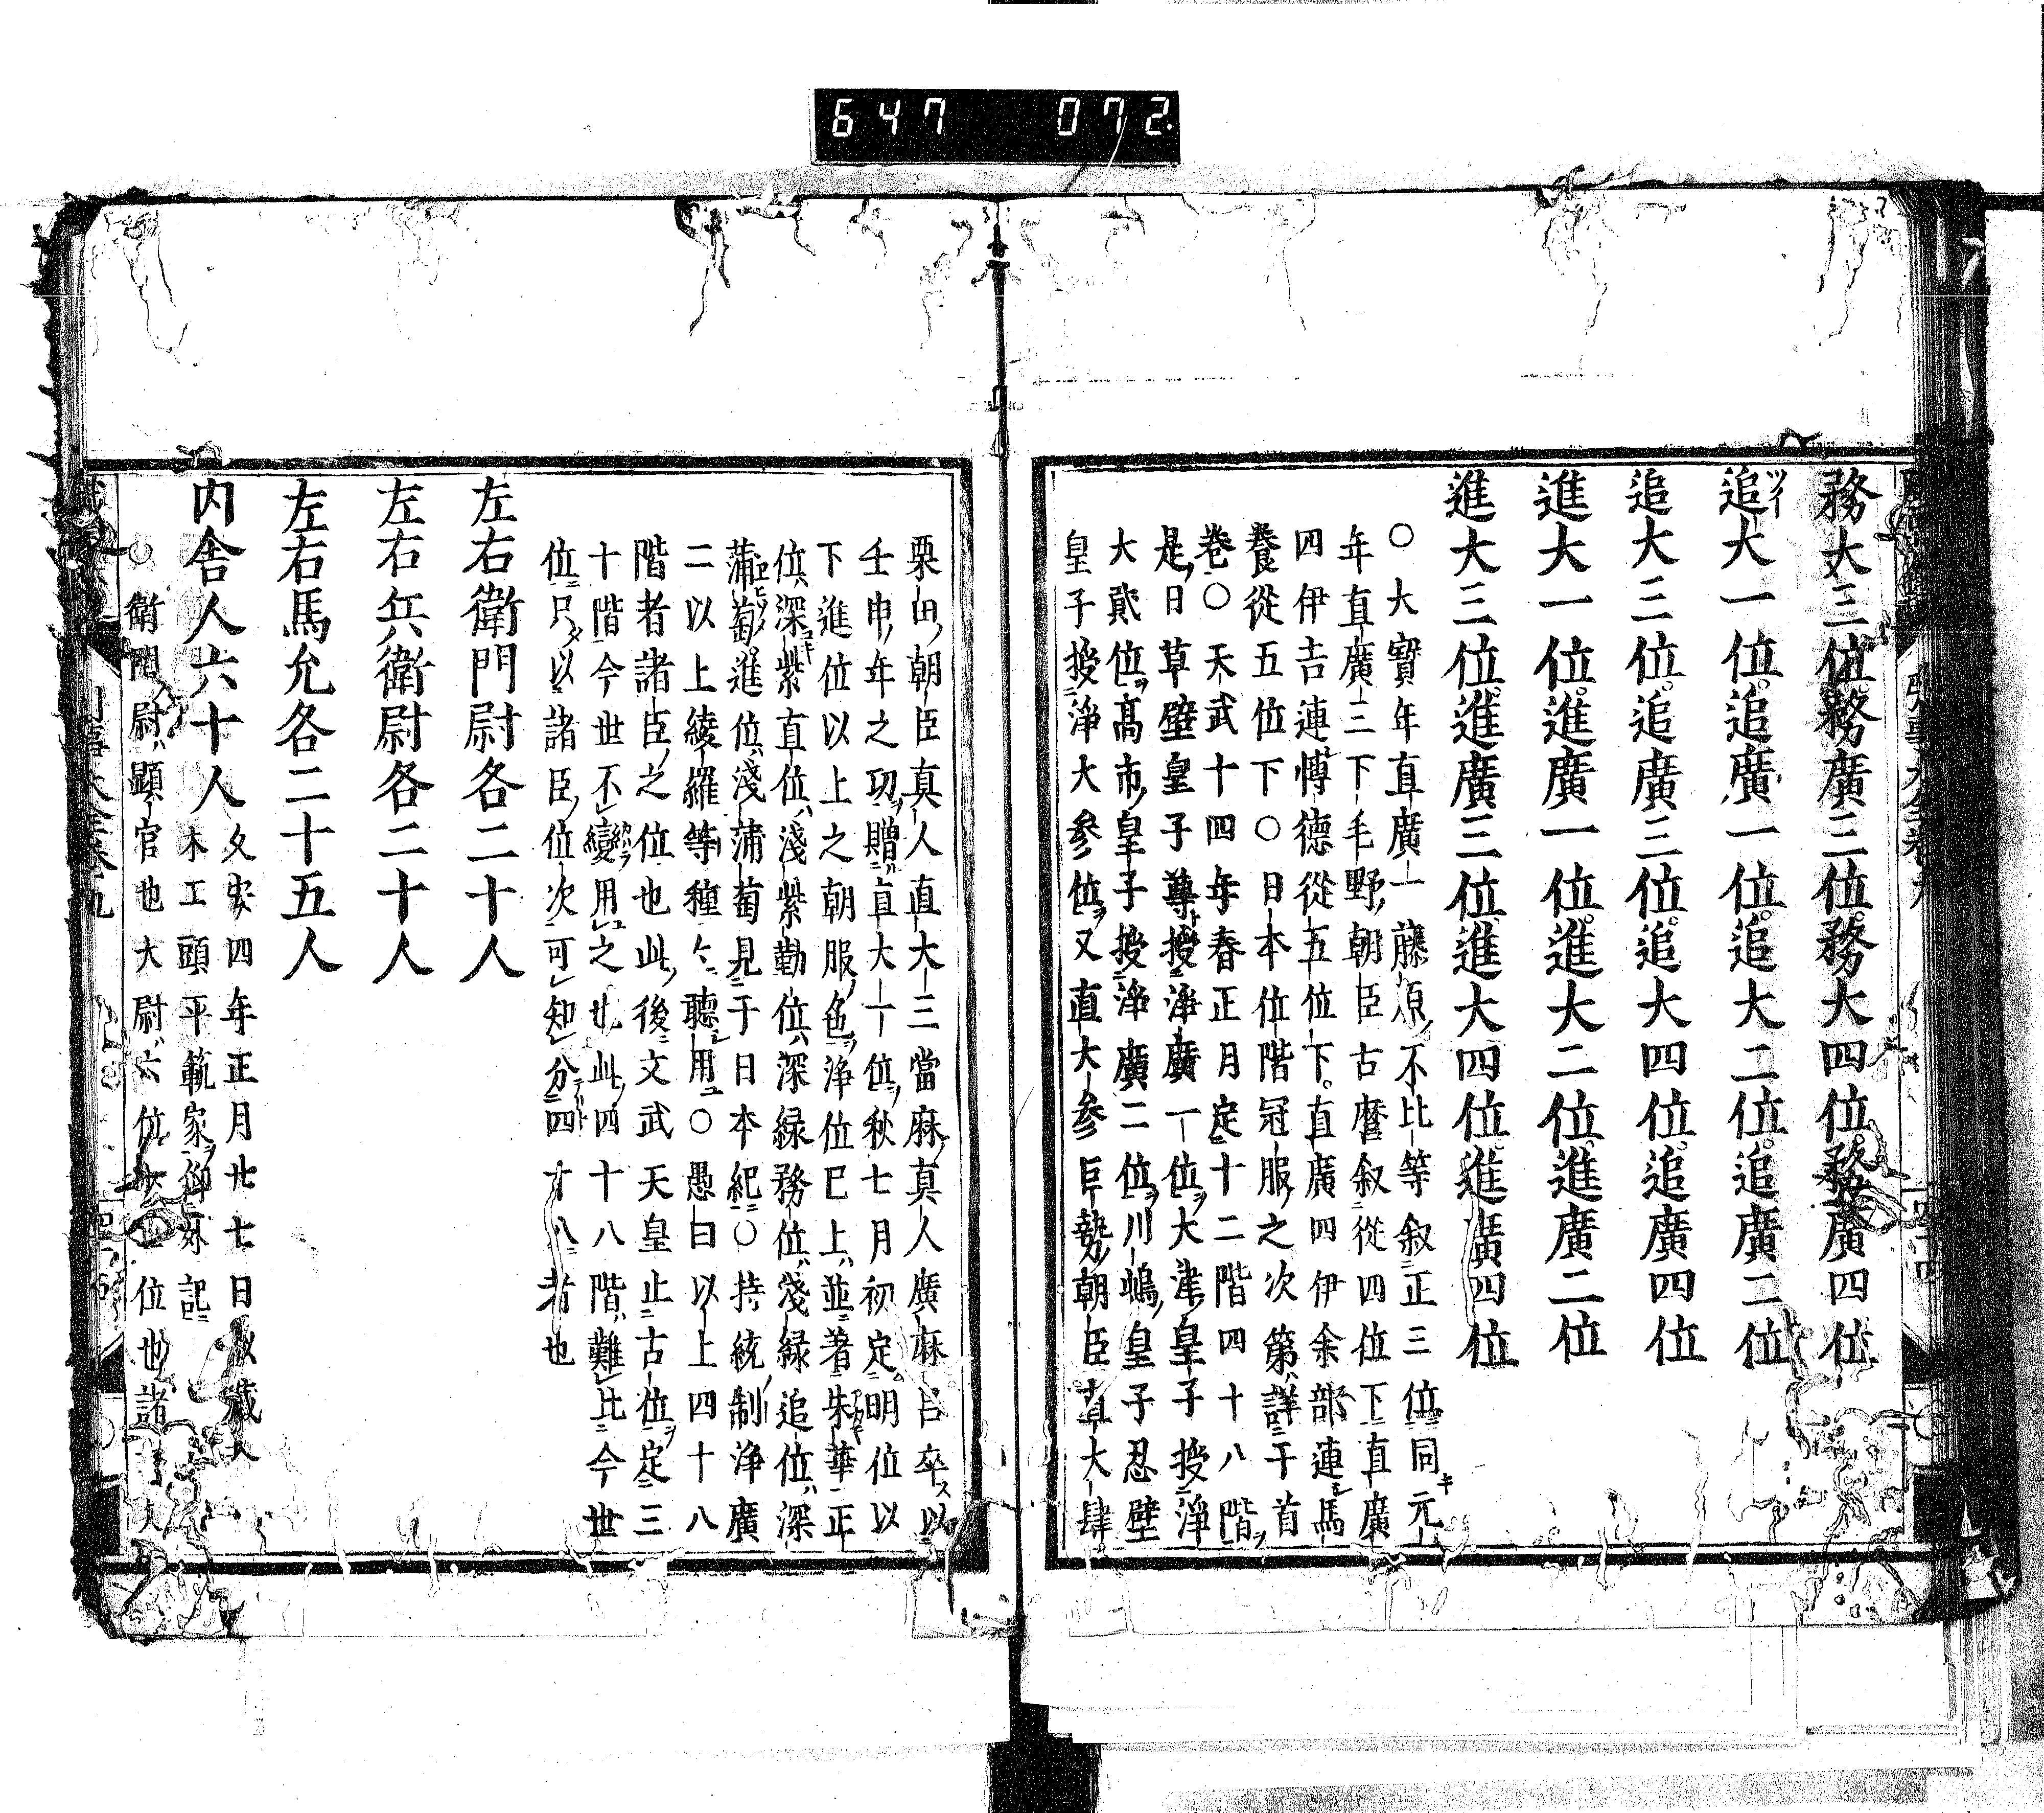 647 072
務大三位務廣三位務大四位務廣四位
追大一位追廣一位追大二位追廣二位
追大三位追廣三位追大四位追廣四位
進大一位進廣一位進大二位進廣二位
進大三位進廣三位進大四位進廣四位
○大寳年直廣一藤原不比等叙正三位同元
年直廣三下毛野朝臣古麿叙從四位下直廣
四伊吉連愽德從五位下直廣四伊余部連馬
養從五位下○日本位階冠服之次第詳于首
巻○天武十四年春正月定十二階四十八階
是日草壁皇子尊授淨廣一位大津皇子授淨
大貮位髙市皇子授淨廣二位川嶋皇子忍壁
皇子授淨大參位又直大參巨勢朝臣直大肆
粟田朝臣真人直大三當麻真人廣麻呂卒以
壬申年之功贈直大一位秋七月初定明位以
下進位以上之朝服色淨位巳上並著朱華正
位深紫直位淺紫勤位深緑務位淺緑追位深
蒲萄進位淺蒲萄見于日本紀○持統制淨廣
二以上綾羅等種々聽用○愚曰以上四十八
階者諸臣之位也此後文武天皇止古位定三
十階今世不變用之也此四十八階難比今世
位只以諸臣位次可知分四十八者也
左右衛門尉各二十人
左右兵衛尉各二十人
左右馬允各二十五人
内舎人六十人
久安四年正月廿七日
木工頭平範家 記
○衛門尉顯官也大尉六位 位也諸